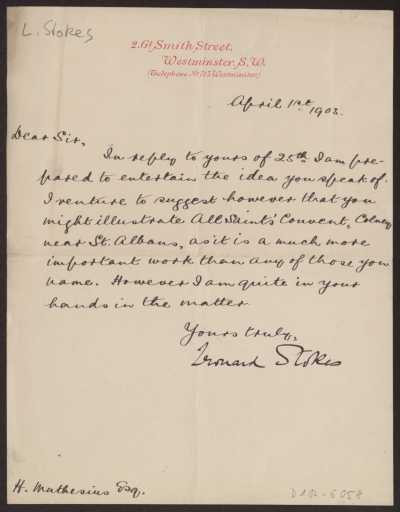 L. Stokes
2. Gt Smith Street,
Westminster, S.W.
(Telephone No 725 Westminster)
April 1st 1903.
Dear Sir,
In reply to yours of 25th I am pre-
pared to entertain the idea you speak of.
I venture to suggest however that you
might illustrate All Saint's Convent, Colney
near St. Albans, as it is a much more
important work than any of those you
name. However I am quite in your
hands in the matter
Yours truly,
Leonard Stokes
H. Muthesius Esq.